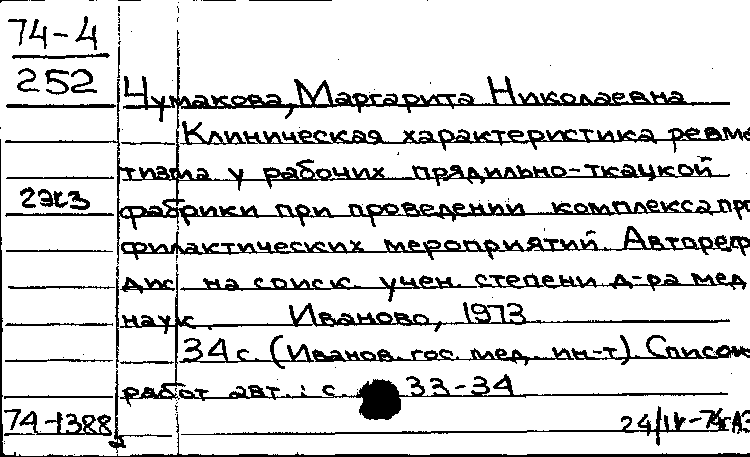 74-4
252
Чумакова, Маргарита Николаевна
Клиническая характеристика ревма
тизма у рабочих прядильно-ткацкой
2экз
фабрики при проведении комплекса про
филактических мероприятий. Автореф.
дис. на соиск. учен. степени д-ра мед.
наук. Иваново, 1973
34 с. (Иванов. гос. мед. ин-т). Список
работ авт.: с. 33-34
74-1388
24/IV-74г